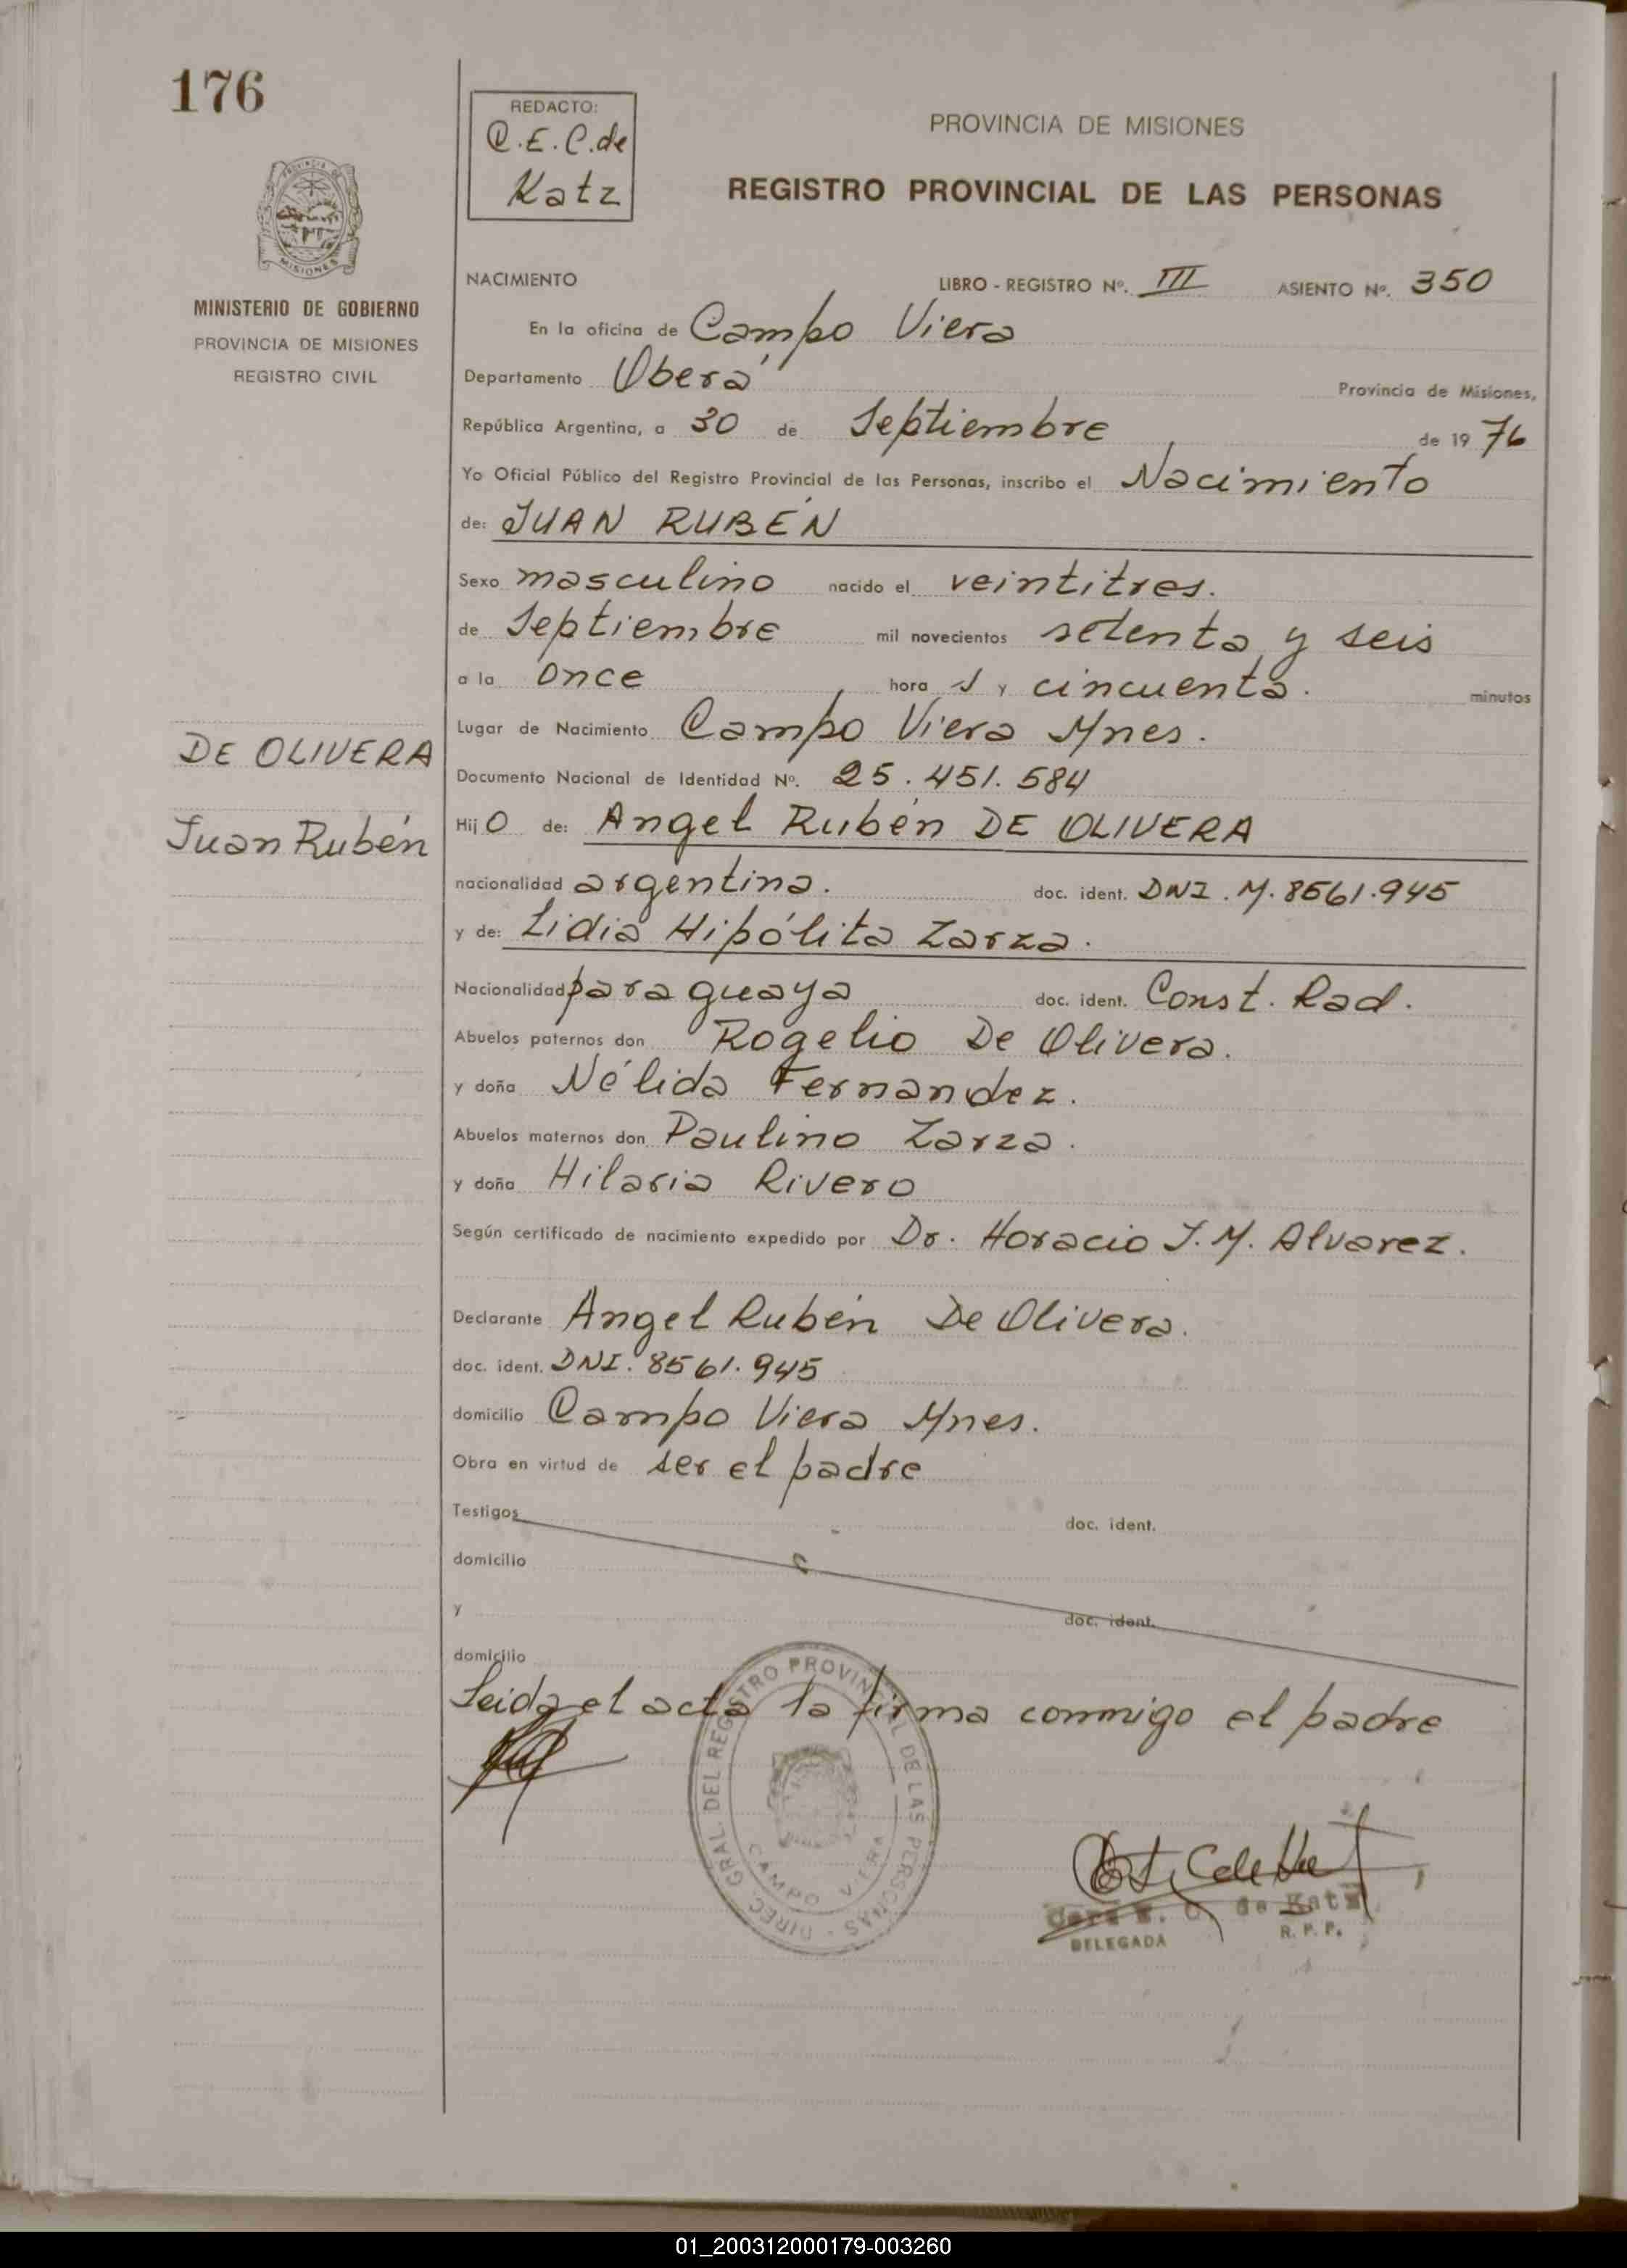 176
REDACTO:
C.E.C. de
Katz
PROVINCIA DE MISIONES
REGISTRO PROVINCIAL DE LAS PERSONAS
MISIONES
MINISTERIO DE GOBIERNO
PROVINCIA DE MISIONES
REGISTRO CIVIL
NACIMIENTO LIBRO - REGISTRO Nº. III ASIENTO Nº. 350
En la oficina de Campo Viera
Departamento Oberá Provincia de Misiones,
República Argentina, a 30 de Septiembre de 1976
Yo Oficial Público del Registro Provincial de las Personas, inscribo el Nacimiento
de: JUAN RUBÉN
Sexo masculino nacido el veintitres.
de Septiembre mil novecientos setenta y seis
a la once hora s y cincuenta. minutos
Lugar de Nacimiento Campo Viera Mnes.
DE OLIVERA
Juan Rubén
Documento Nacional de Identidad Nº. 25.451.584
Hijo de: Angel Rubén DE OLIVERA
nacionalidad argentina. doc. ident. DNI. M. 8561.945
y de: Lidia Hipólita Zarza.
Nacionalidad paraguaya doc. ident. Const. Rad.
Abuelos paternos don Rogelio De Olivera.
y doña Nélida Fernandez.
Abuelos maternos don Paulino Zarza.
y doña Hilaria Rivero
Según certificado de nacimiento expedido por Dr. Horacio J. M. Alvarez.
Declarante Angel Rubén De Olivera.
doc. ident. DNI. 8561.945
domicilio Campo Viera Mnes.
Obra en virtud de ser el padre
Testigos doc. ident.
domicilio
y doc. ident.
domicilio
Leida el acta la firma conmigo el padre
DIREC. GRAL. DEL REGISTRO PROVINCIAL DE LAS PERSONAS -
CAMPO VIERA
de Katz
DELEGADA R. P. P.
01_200312000179-003260